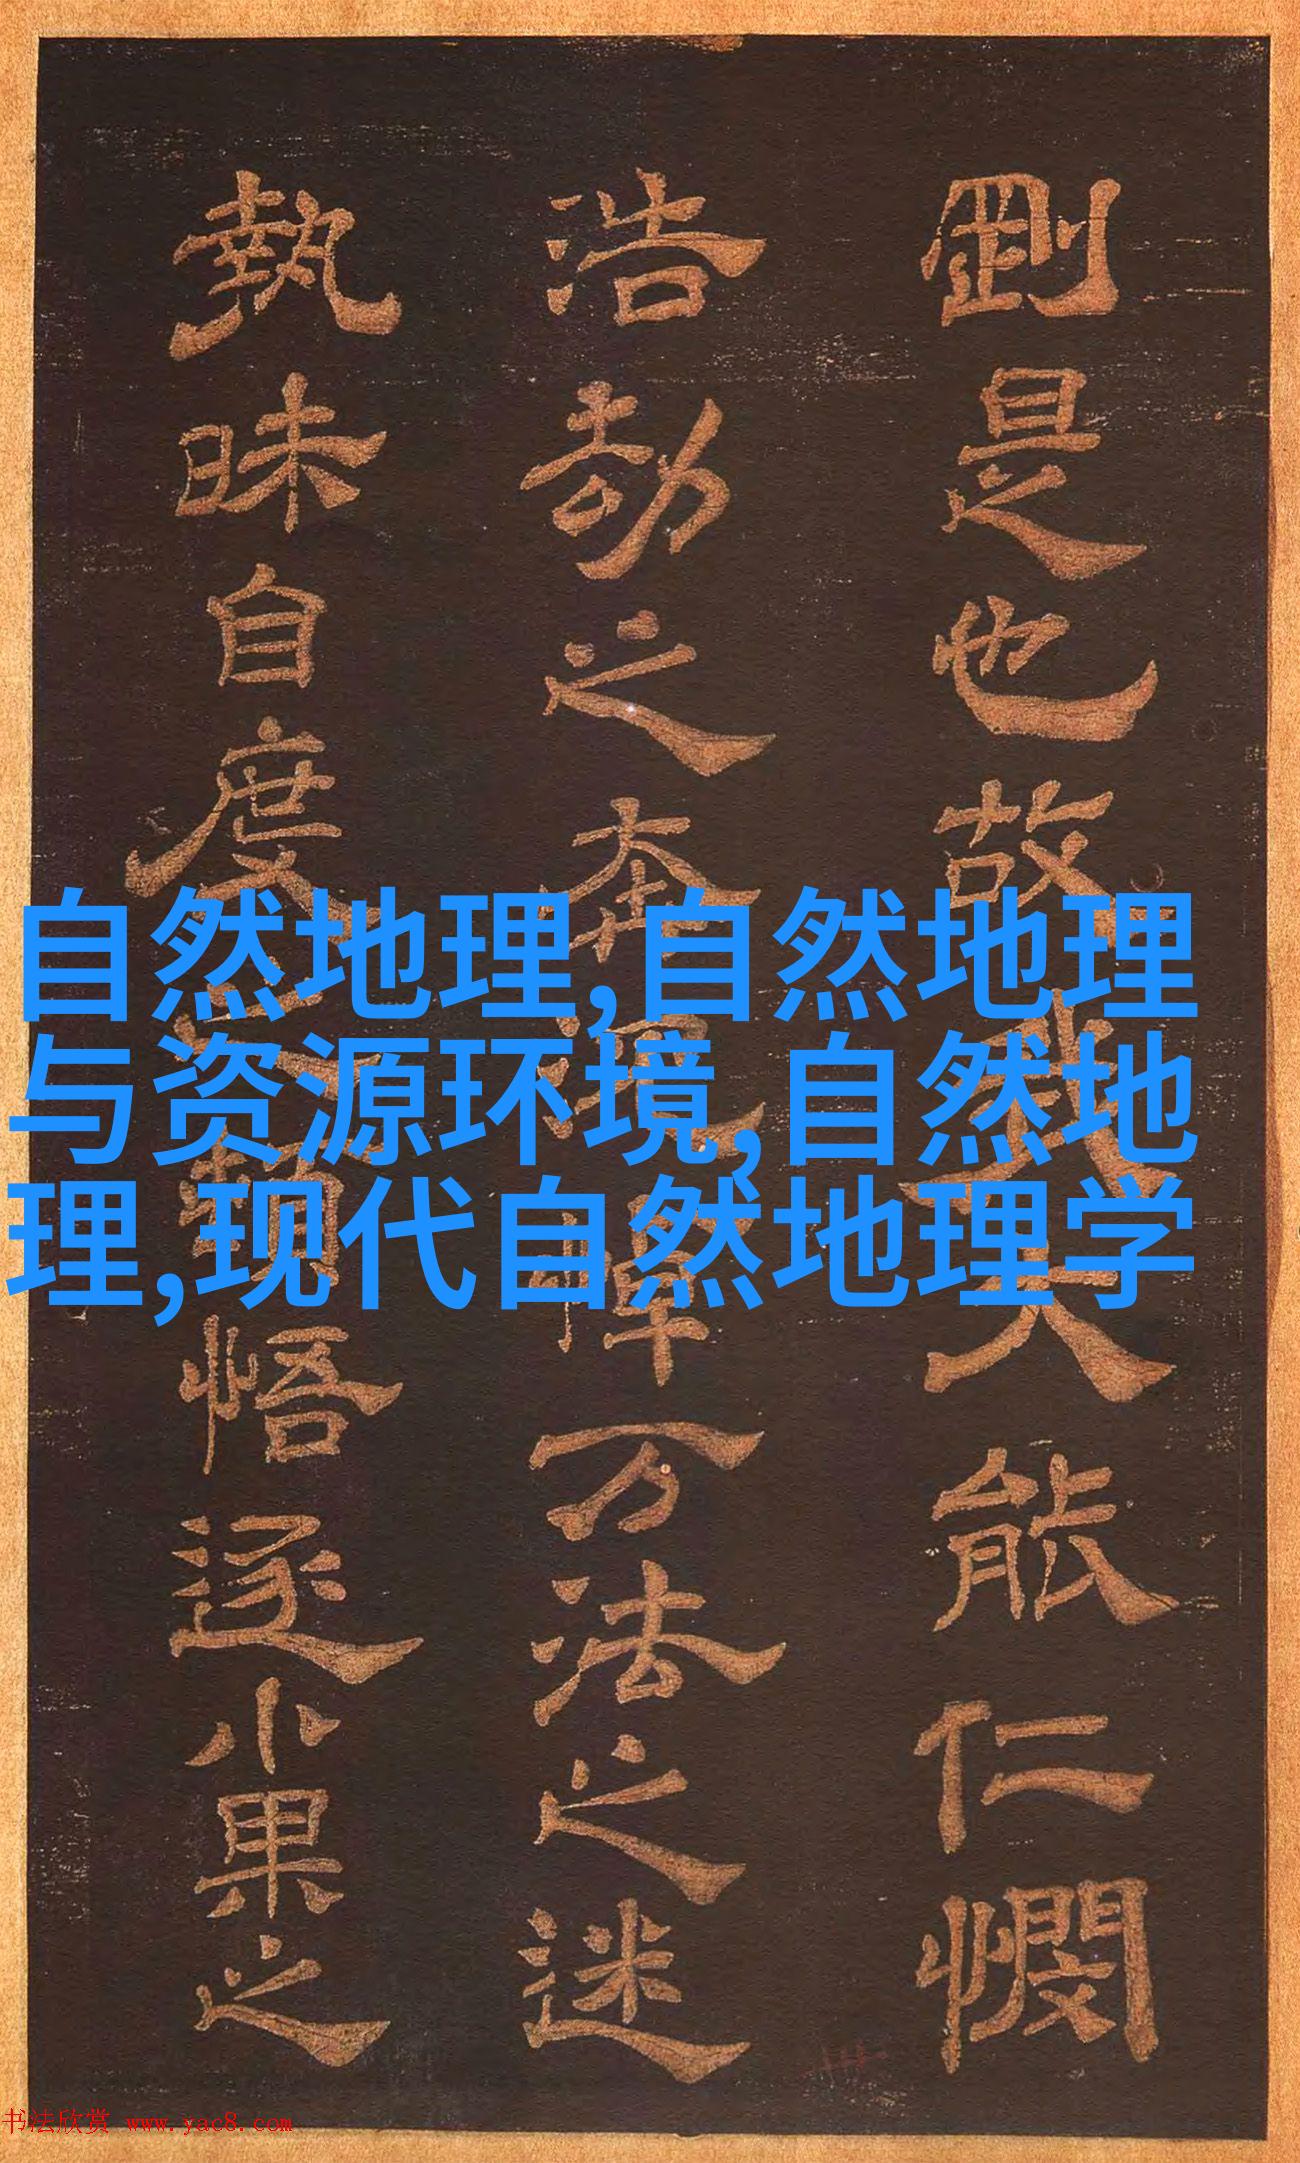 剛是也故我大能仁憫
浩劫之万法之迷
執昧自度之悟逐小果之
自然地理,自然地理
与资源环境,自然地
理,现代自然地理学
书法欣赏 www.yac8.com